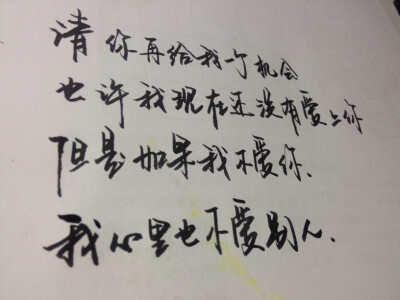 请你再给我一个机会
也许我现在还没有爱上你
但是如果我不爱你、
我心里也不爱别人.